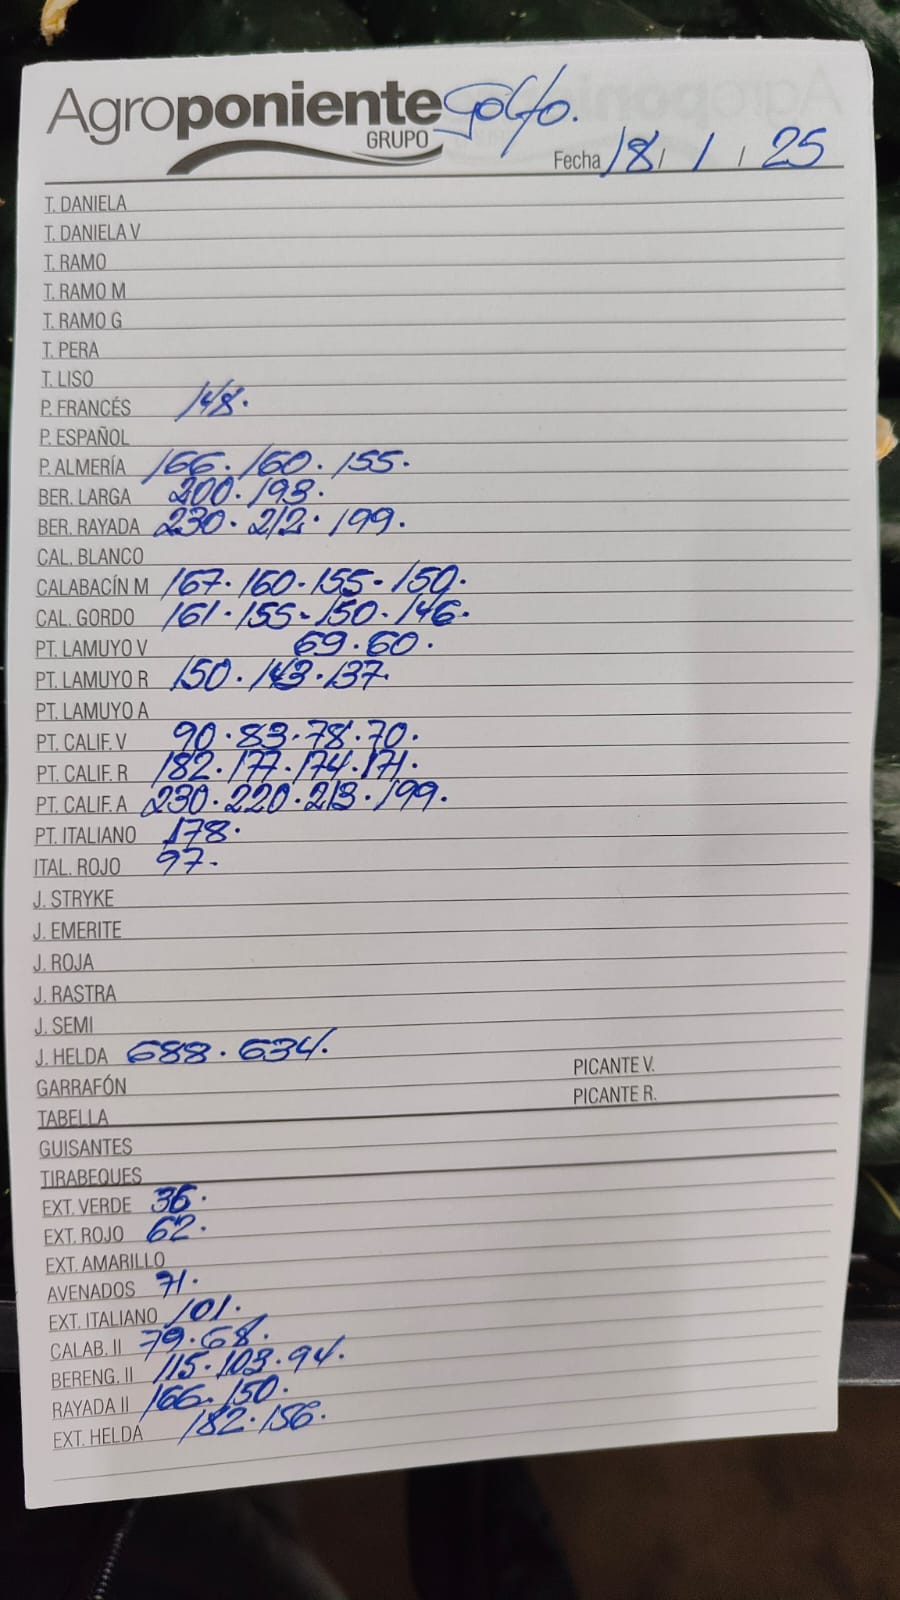 Agroponiente Golfo.
GRUPO
Fecha 18/ 1 / 25
T. DANIELA
T. DANIELA V
T. RAMO
T. RAMO M
T. RAMO G
T. PERA
T. LISO
P. FRANCÉS 148.
P. ESPAÑOL
P. ALMERÍA 166. 160. 155.
BER. LARGA 200. 193.
BER. RAYADA 230. 212. 199.
CAL. BLANCO
CALABACÍN M 167. 160. 155. 150.
CAL. GORDO 161. 155. 150. 146.
PT. LAMUYO V 69. 60.
PT. LAMUYO R 150. 143. 137.
PT. LAMUYO A
PT. CALIF. V 90. 83. 78. 70.
PT. CALIF. R 182. 177. 174. 171.
PT. CALIF. A 230. 220. 213. 199.
PT. ITALIANO 178.
ITAL. ROJO 97.
J. STRYKE
J. EMERITE
J. ROJA
J. RASTRA
J. SEMI
J. HELDA 688. 634.
GARRAFÓN PICANTE V.
TABELLA PICANTE R.
GUISANTES
TIRABEQUES
EXT. VERDE 36.
EXT. ROJO 62.
EXT. AMARILLO
AVENADOS 71.
EXT. ITALIANO 101.
CALAB. II 79. 68.
BERENG. II 115. 103. 94.
RAYADA II 166. 150.
EXT. HELDA 182. 156.